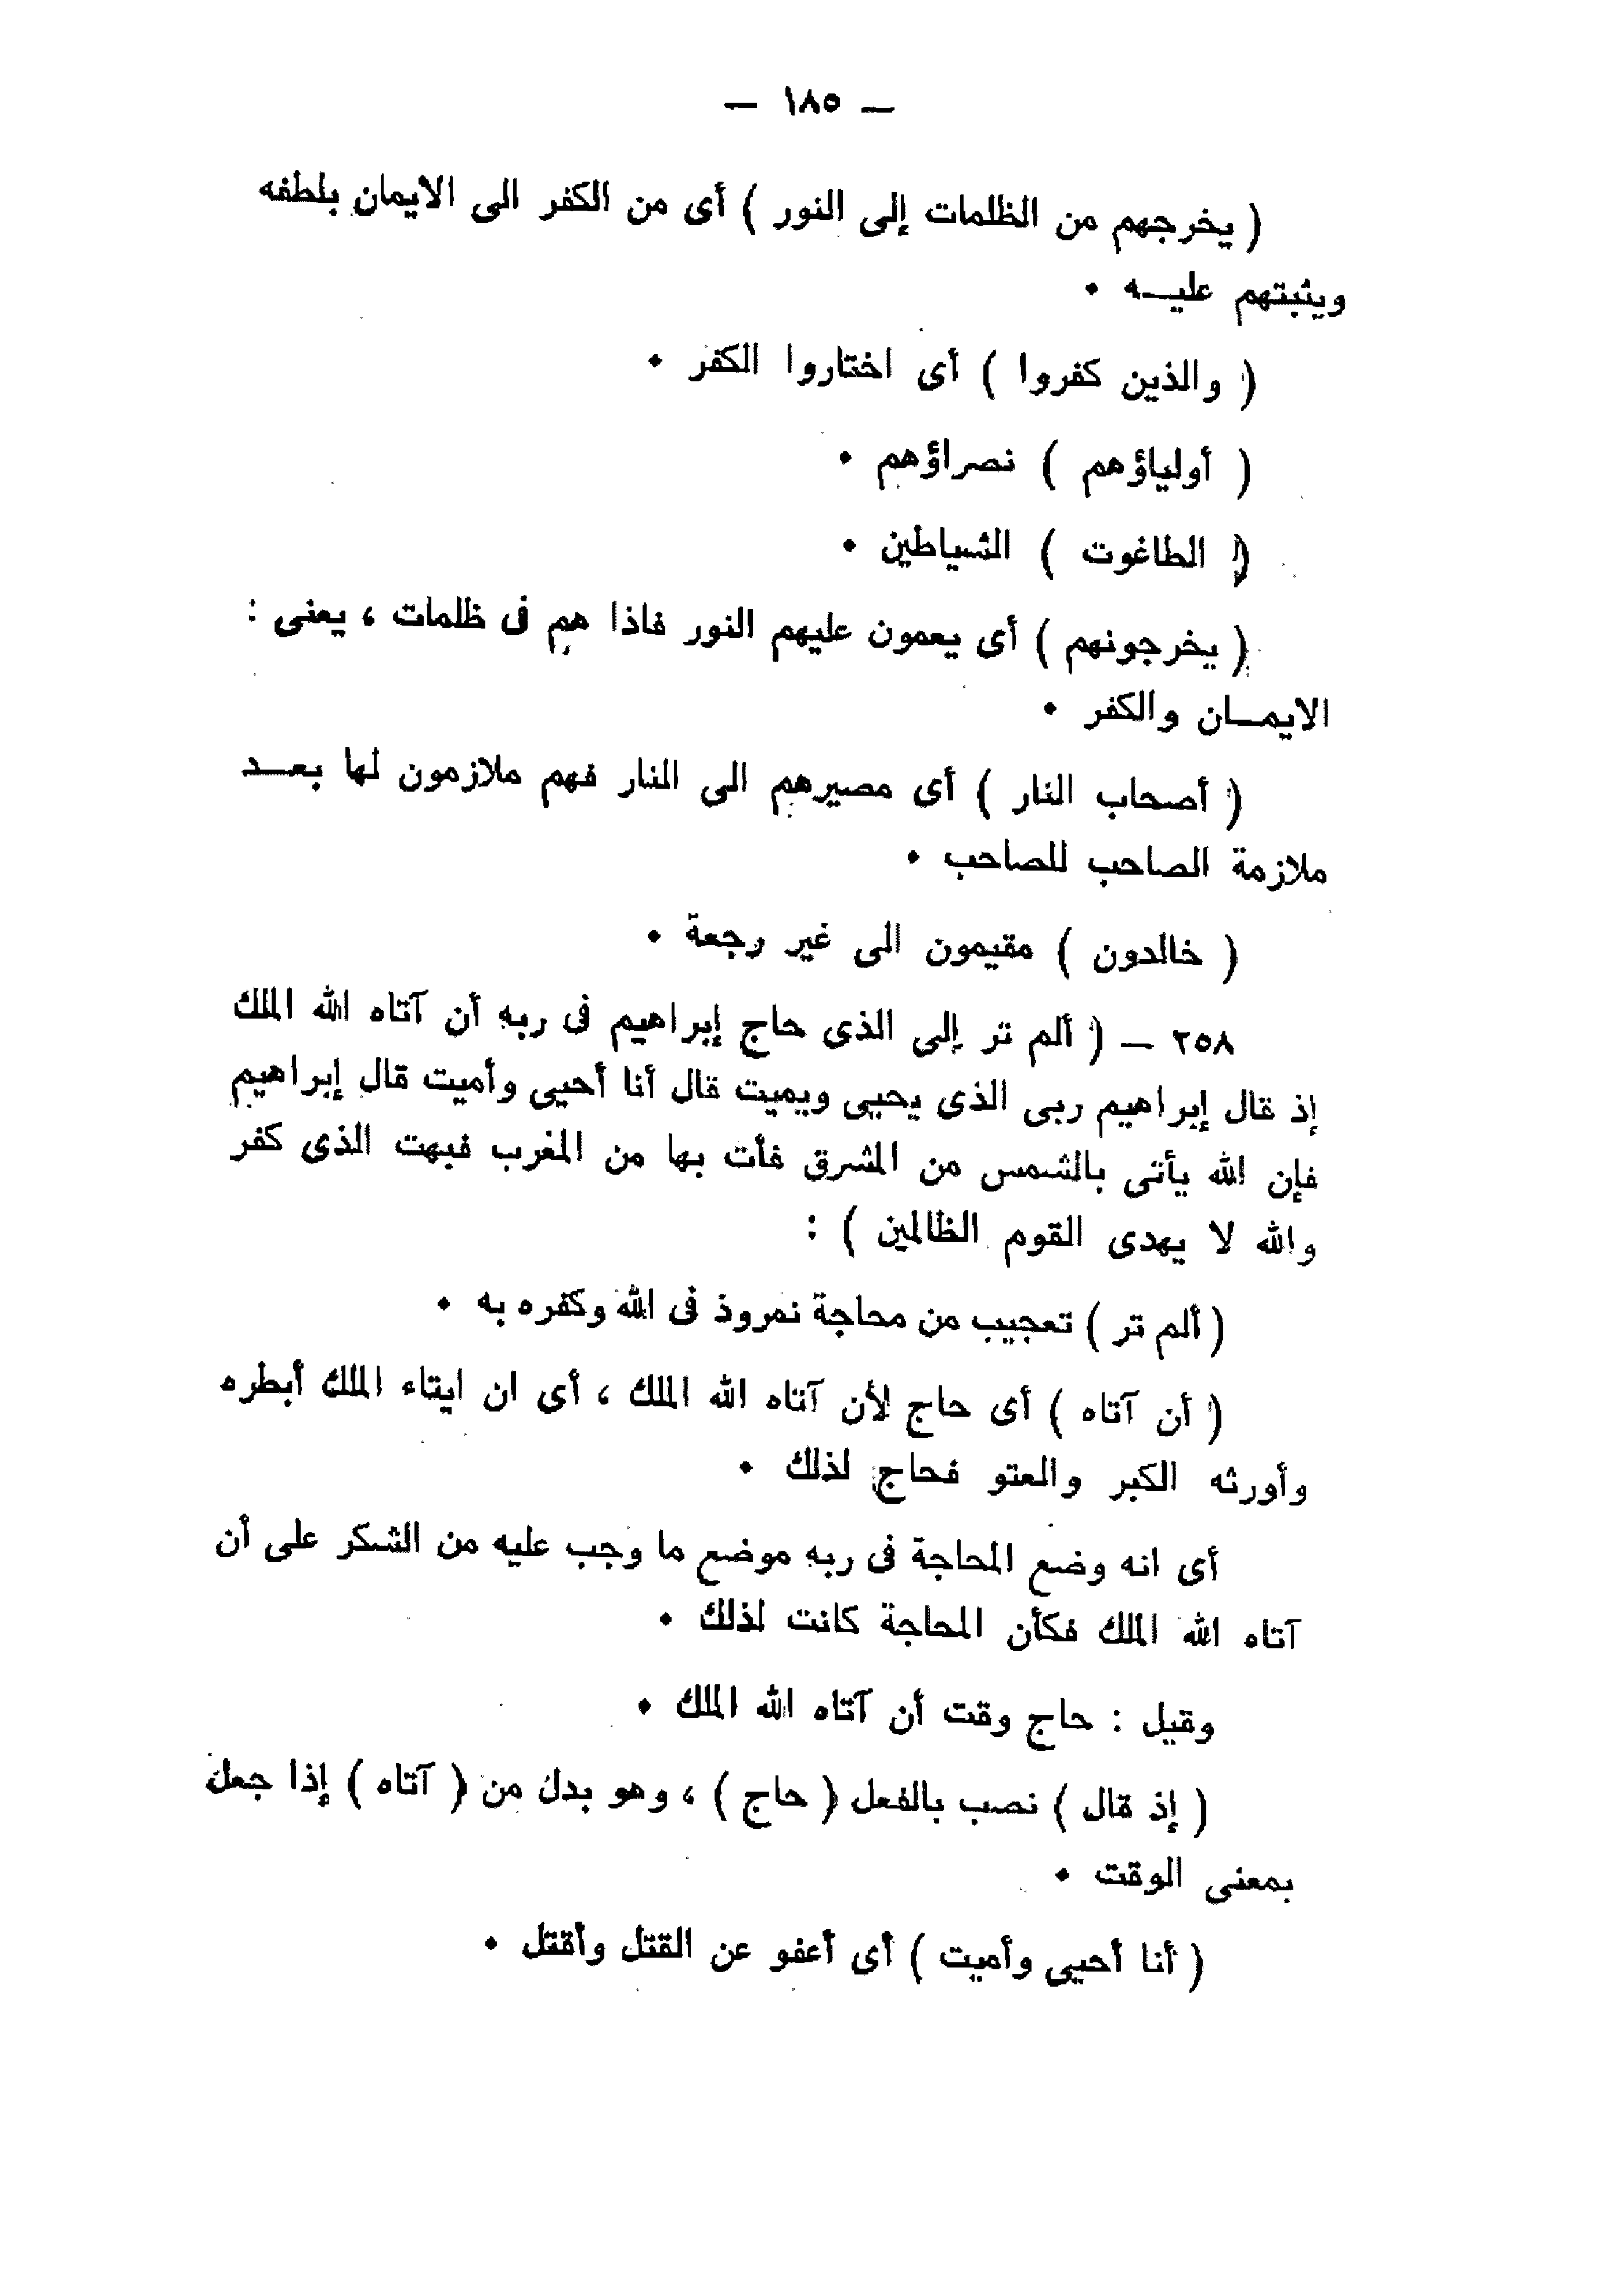 — ١٨٥ —
( يخرجهم من الظلمات إلى النور ) أى من الكفر الى الايمان بلطفه
ويثبتهم عليـــه ٠
( والذين كفروا ) أى اختاروا الكفر ٠
( أولياؤهم ) نصراؤهم ٠
( الطاغوت ) الشياطين ٠
( يخرجونهم ) أى يعمون عليهم النور فاذا هم فى ظلمات ، يعنى :
الايمـــان والكفر ٠
( أصحاب النار ) أى مصيرهم الى النار فهم ملازمون لها بعـــد
ملازمة الصاحب للصاحب ٠
( خالدون ) مقيمون الى غير رجعة ٠
٢٥٨ — ( ألم تر إلى الذى حاج إبراهيم فى ربه أن آتاه الله الملك
إذ قال إبراهيم ربى الذى يحيى ويميت قال أنا أحيى وأميت قال إبراهيم
فإن الله يأتى بالشمس من المشرق فأت بها من المغرب فبهت الذى كفر
والله لا يهدى القوم الظالمين ) :
( ألم تر ) تعجيب من محاجة نمروذ فى الله وكفره به ٠
( أن آتاه ) أى حاج لأن آتاه الله الملك ، أى ان ايتاء الملك أبطره
وأورثه الكبر والعتو فحاج لذلك ٠
أى انه وضع المحاجة فى ربه موضع ما وجب عليه من الشكر على أن
آتاه الله الملك فكأن المحاجة كانت لذلك ٠
وقيل : حاج وقت أن آتاه الله الملك ٠
( إذ قال ) نصب بالفعل ( حاج ) ، وهو بدل من ( آتاه ) إذا جعل
بمعنى الوقت ٠
( أنا أحيى وأميت ) أى أعفو عن القتل وأقتل ٠